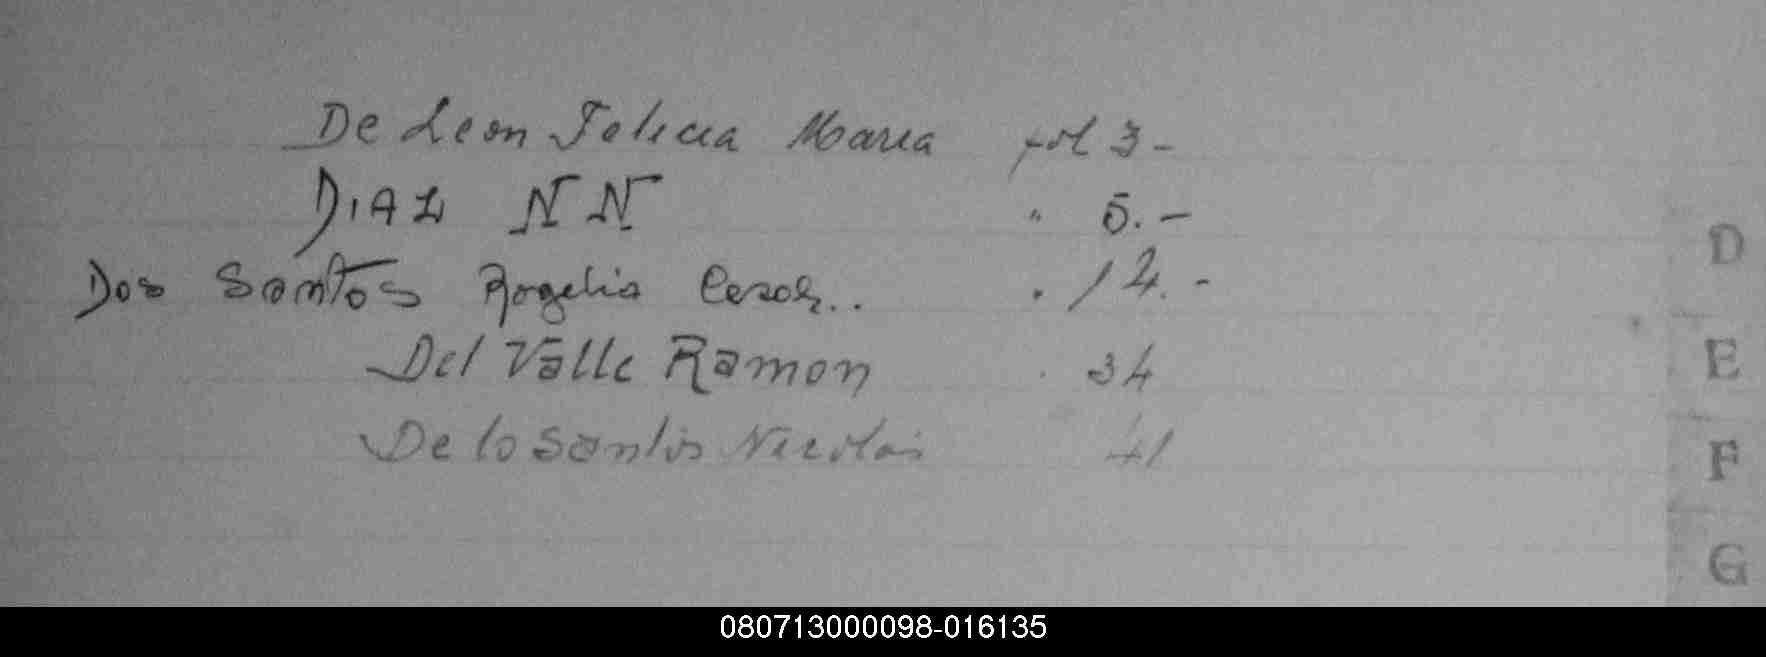 De Leon Felicia Maria fol 3-
DIAZ NN " 5.-
Dos Santos Rogelio Cesar.. . 14.-
Del Valle Ramon . 34
De lo Santos Nicolas 41
D
E
F
G
080713000098-016135